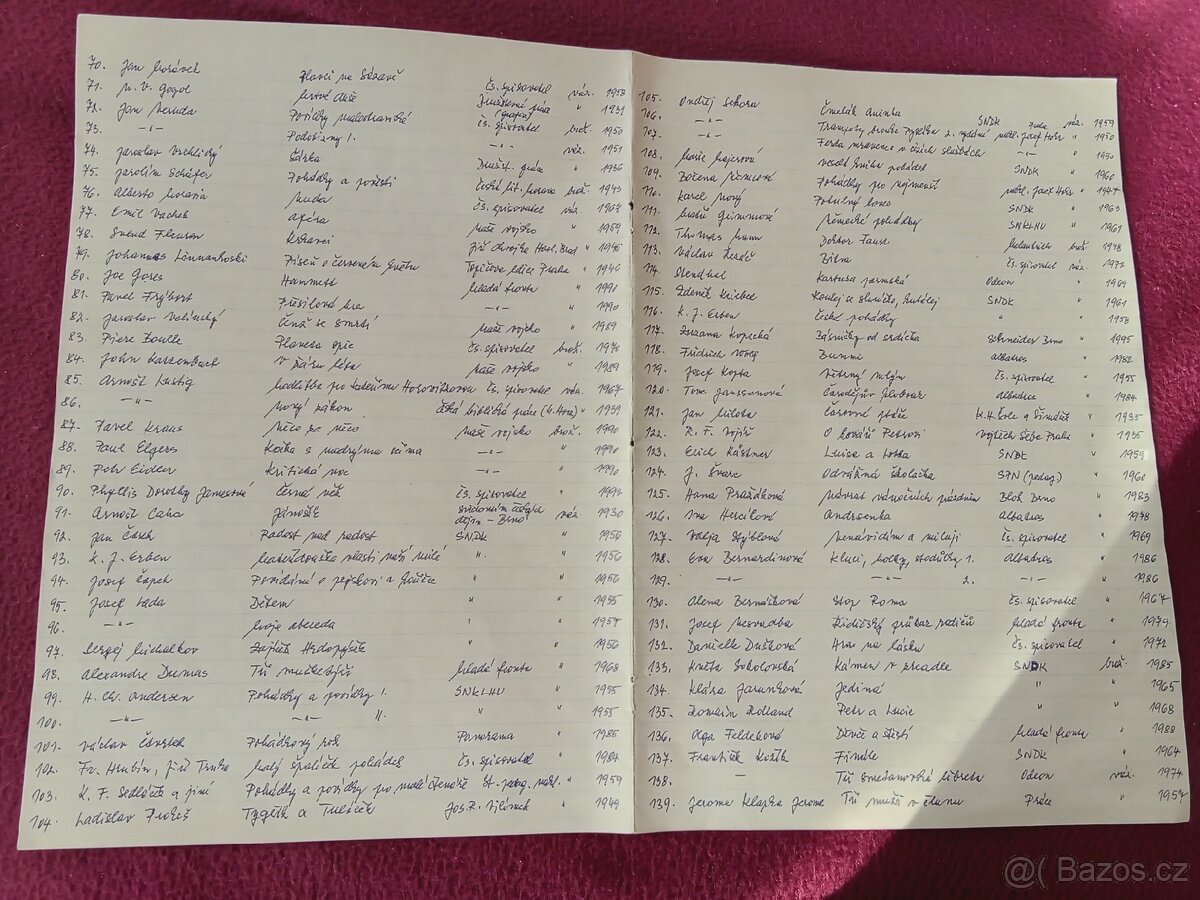 70. Jan Morávek Plavci na Sázavě Čs. spisovatel váz. 1953
71. N. V. Gogol Mrtvé duše Družstevní práce " 1931
72. Jan Neruda Povídky malostranské Čs. spisovatel brož. 1950
73. -"- Podobizny I. -"- váz. 1951
74. Jaroslav Vrchlický Šárka Družst. práce "
75. Jarolím Schäfer Pohádky a pověsti brož. 1943
76. Alberto Moravia Nuda Čs. spisovatel váz. 1967
77. Emil Vachek Aféra Naše vojsko " 1959
78. Svend Fleuron "  1946
79. Johannes Linnankoski Píseň o červeném květu Topičova edice Praha " 1946
80. Joe Gores Hammett Mladá fronta " 1990
81. Pavel Frýbort -"- " 1990
82. Jaroslav Velinský Čeněk se Naše vojsko " 1989
83. Pierre Boulle Planeta opic Čs. spisovatel brož. 1970
84. John Katzenbach V žáru léta Naše vojsko " 1989
85. Arnošt Lustig Modlitba pro Kateřinu Horovitzovou Čs. spisovatel váz. 1967
86. -"- Nový zákon Česká biblická práce " 1939
87. Pavel Kraus Něco za něco Naše vojsko brož. 1990
88. Paul Elgers Kočka s modrýma očima -"- " 1990
89. Petr Eidler Kritická noc -"- " 1990
90. Phyllis Dorothy Jamesová Černá věž Čs. spisovatel " 1992
91. Arnošt Caha Jánošík dějin - Brno váz. 1930
92. Jan Čarek Radost nad radost SNDK " 1956
93. K. J. Erben Mateřídouška vlasti naší milé " " 1956
94. Josef Čapek Povídání o pejskovi a kočičce " " 1956
95. Josef Lada Dětem " " 1955
96. -"- Moje abeceda " " 1957
97. Sergej Michalkov Zajíček Hrdopýšek " " 1956
98. Alexandre Dumas Tři mušketýři Mladá fronta " 1968
99. H. Ch. Andersen Pohádky a povídky I. SNKLHU " 1955
100. -"- -"- II. " " 1955
101. Václav Čtvrtek Pohádkový rok Panorama " 1985
102. Fr. Hrubín, Jiří Trnka Malý špalíček pohádek Čs. spisovatel " 1984
103. K. F. Sedláček a jiní Pohádky a povídky pro malé čtenáře St. pedag. nakl. " 1959
104. Ladislav Prokeš Tygřík a Tuláček Jos. R. Vilímek " 1949
105. Ondřej Sekora Čmelák Aninka SNDK váz. 1959
106. -"- Trampoty brouka Pytlíka 2. vydání nakl. Josef Hokr " 1950
107. -"- Ferda Mravenec v cizích službách -"- " 1950
108. Marie Majerová Veselá kniha pohádek SNDK " 1960
109. Božena Němcová Pohádky pro nejmenší nakl. Josef Hokr " 1947
110. Karel Nový Potulný lovec SNDK " 1963
111. Bratři Grimmové Německé pohádky SNKLHU " 1961
112. Thomas Mann Doktor Faust Melantrich brož. 1948
113. Václav Řezáč Bitva Čs. spisovatel váz. 1972
114. Stendhal Kartusa parmská Odeon " 1969
115. Zdeněk Kriebel Koulej se sluníčko, kutálej SNDK " 1961
116. K. J. Erben České pohádky " " 1958
117. Zuzana Kopecká Básničky od srdíčka Schneider Brno " 1995
118. Fridrich Wolf Bummi Albatros " 1982
119. Josef Kopta Větrný mlýn Čs. spisovatel " 1955
120. Tove Janssonová Čarodějův klobouk Albatros " 1984
121. Jan Milota Čarovné ptáče K. H. Šolc a Šimáček " 1935
122. R. F. Vojíř O kováři Petrovi Vojtěch Šeba Praha " 1935
123. Erich Kästner Luisa a Lotka SNDK " 1959
124. J. Švarc Odvážná školačka SPN (pedag.) " 1960
125. Hana Pražáková Návrat vánočních prázdnin Blok Brno " 1983
126. Iva Hercíková Andersenka Albatros " 1978
127. Valja Stýblová Nenávidím a miluji Čs. spisovatel " 1969
128. Eva Bernardinová Kluci, holky, stodůlky 1. Albatros " 1986
129. -"- -"- 2. -"- " 1986
130. Alena Bernášková Stop Roma Čs. spisovatel " 1967
131. Josef Nesvadba Řidičský průkaz rodičů Mladá fronta " 1979
132. Danielle Dušková Hra na lásku Čs. spisovatel " 1972
133. Květa Sokolovská Kámen v zrcadle SNDK brož. 1985
134. Klára Jarunková Jediná " " 1965
135. Romain Rolland Petr a Lucie " " 1968
136. Olga Feldeková Děvče a štěstí Mladá fronta " 1988
137. František Kožík Finále SNDK " 1964
138. - Tři smetanovská libreta Odeon váz. 1974
139. Jerome Klapka Jerome Tři muži ve člunu Práce " 1957
@( Bazos.cz